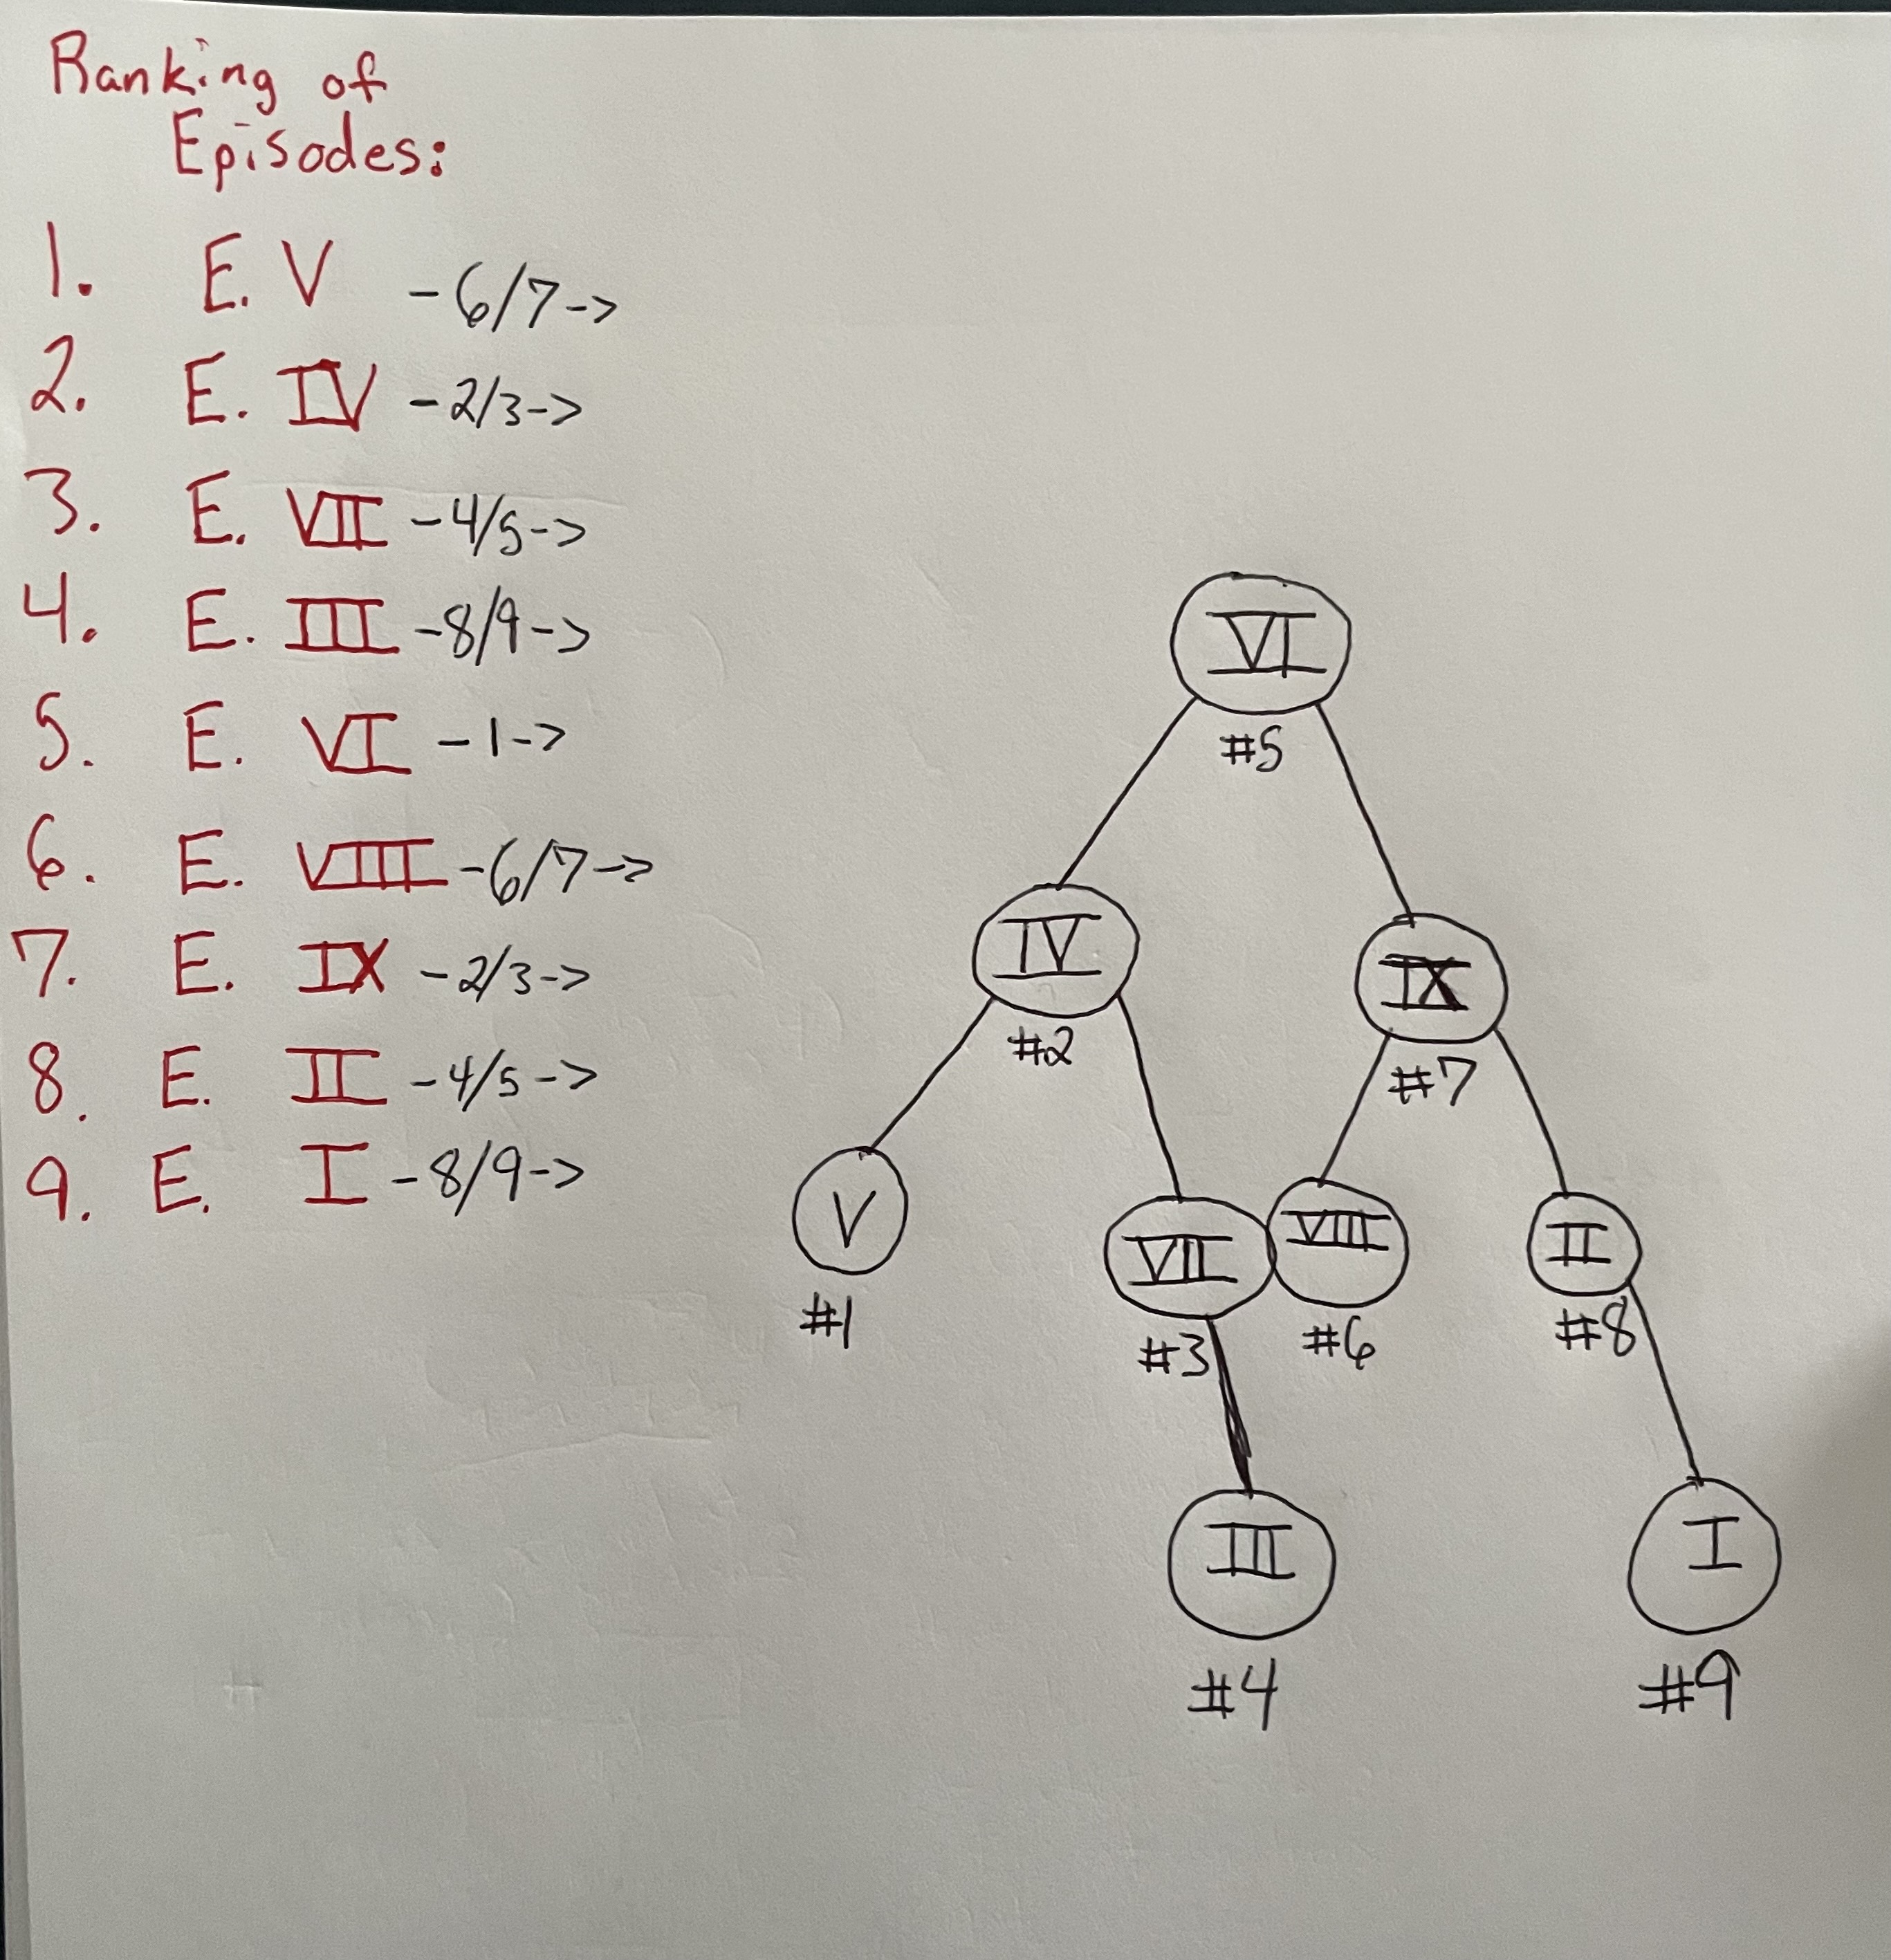 Ranking of
Episodes:
1. E. V -6/7->
2. E. IV -2/3->
3. E. VII -4/5->
4. E. III -8/9->
5. E. VI -1->
6. E. VIII -6/7->
7. E. IX -2/3->
8. E. II -4/5->
9. E. I -8/9->
VI
#5
IV
#2
IX
#7
V
#1
VII
#3
VIII
#6
II
#8
III
#4
I
#9